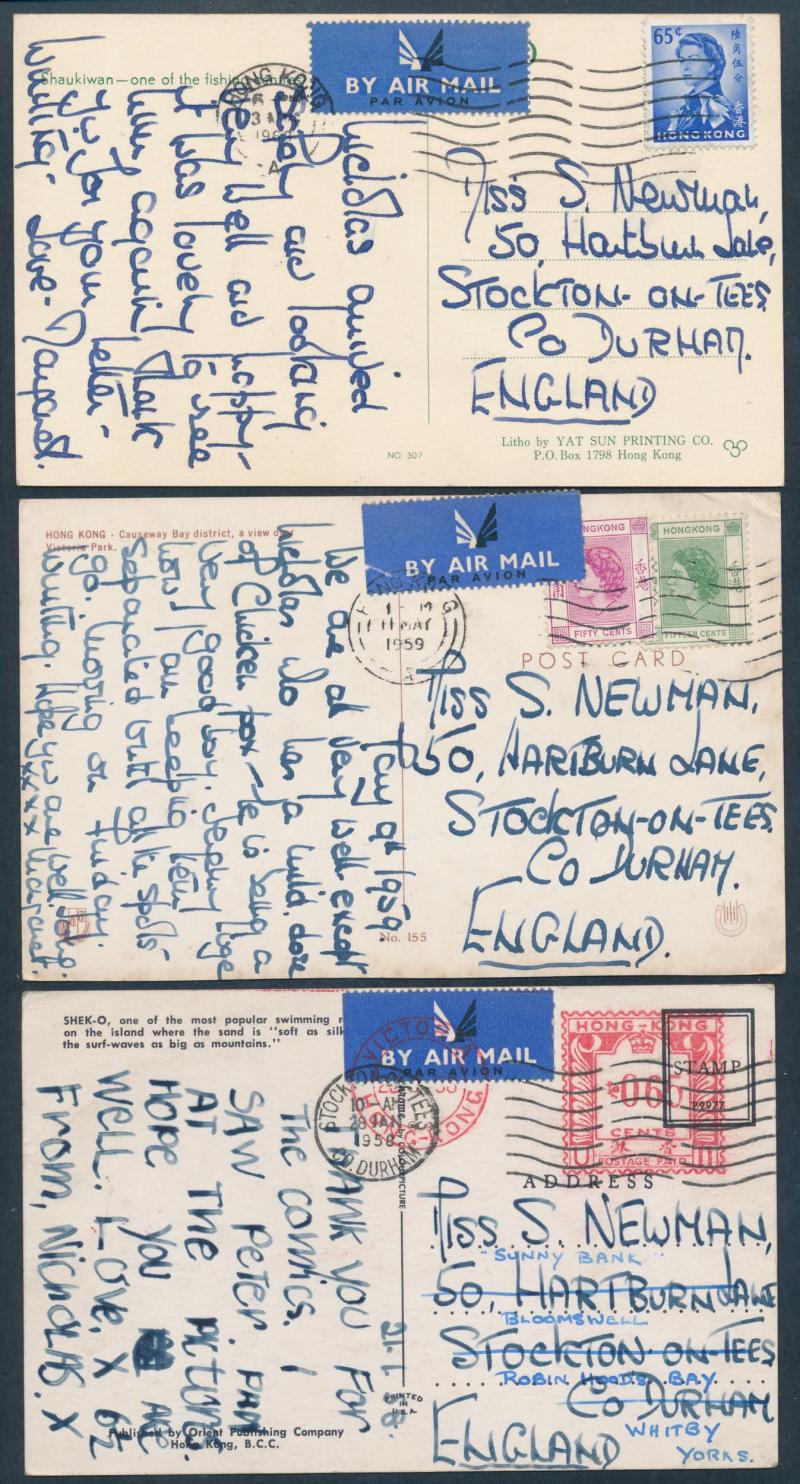 Shaukiwan—one of the fishing
HONG KONG
1962
A
BY AIR MAIL
PAR AVION
65¢
陸角伍分
香港
HONG KONG
Nicholas arrived
safely and looking
very well and happy-
it was lovely to see
him again. Thank
you for your letter -
writing. Love - Margaret.
Miss S. Newman,
50, Hartburn Lane,
STOCKTON-ON-TEES
Co DURHAM.
ENGLAND
NO. 307
Litho by YAT SUN PRINTING CO.
P.O.Box 1798 Hong Kong
HONG KONG - Causeway Bay district, a view
Victoria Park.
BY AIR MAIL
PAR AVION
HONG KONG
11 MAY
1959
A
HONGKONG
香港
FIFTY CENTS
HONGKONG
香港
FIFTEEN CENTS
POST CARD
1959.
We are all very well except
Nicholas who has a mild dose
of Chicken pox - He is being a
very good boy. Jeremy Inge
how I am keeping them
separated until all the spots
go. Moving on Friday.
writing. Hope you are well. Love.
xxxx Margaret.
Miss S. NEWMAN,
50, HARTBURN LANE,
STOCKTON-ON-TEES.
Co DURHAM.
ENGLAND.
No. 155
SHEK-O, one of the most popular swimming
on the island where the sand is "soft as silk
the surf-waves as big as mountains."
BY AIR MAIL
PAR AVION
VICTORIA
HONG KONG
STOCKTON-ON-TEES
10 - AM
28 JAN
1958
CO. DURHAM
HONG-KONG
065
CENTS
POSTAGE PAID
STAMP
P2977
ADDRESS
21.1.58.
THANK YOU FOR
The COMICS. I
SAW PETER PAN
AT THE PICTURES.
HOPE YOU ARE
WELL. LOVE, X
From, NICHOLAS. X
Miss S. NEWMAN,
"SUNNY BANK"
50, HARTBURN LANE
BLOOMSWELL
STOCKTON-ON-TEES
ROBIN HOOD'S BAY
Co DURHAM
WHITBY
ENGLAND
YORKS.
PRINTED IN U.S.A.
Published by Orient Publishing Company
Hong Kong, B.C.C.